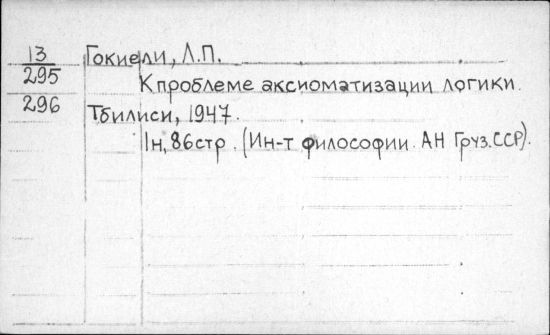 13 Гокиели, Л.П.
295
К проблеме аксиоматизации логики.
296 Тбилиси, 1947.
1н, 86стр. (Ин-т философии. АН Груз.ССР).